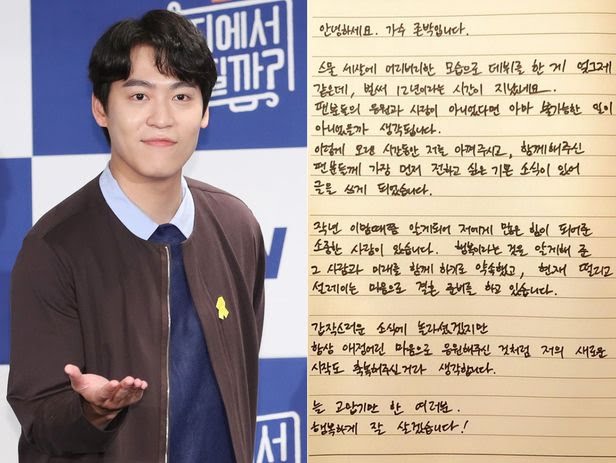 디에서
질까?
에서
안녕하세요. 가수 존박입니다.
스물 세살에 어리버리한 모습으로 데뷔를 한 게 엊그제
같은데, 벌써 12년이라는 시간이 지났네요.
팬분들의 응원과 사랑이 아니었다면 아마 불가능한 일이
아니었을까 생각됩니다.
이렇게 오랜 시간동안 저를 아껴주시고, 함께해주신
팬분들께 가장 먼저 전하고 싶은 기쁜 소식이 있어
글을 쓰게 되었습니다.
작년 이맘때쯤 알게되어 저에게 많은 힘이 되어준
소중한 사람이 있습니다. 행복이라는 것을 알게해 준
그 사람과 미래를 함께 하기로 약속했고, 현재 떨리고
설레이는 마음으로 결혼 준비를 하고 있습니다.
갑작스러운 소식에 놀라셨겠지만
항상 애정어린 마음으로 응원해주신 것처럼 저의 새로운
시작도 축복해주실거라 생각합니다.
늘 고맙기만 한 여러분.
행복하게 잘 살겠습니다!